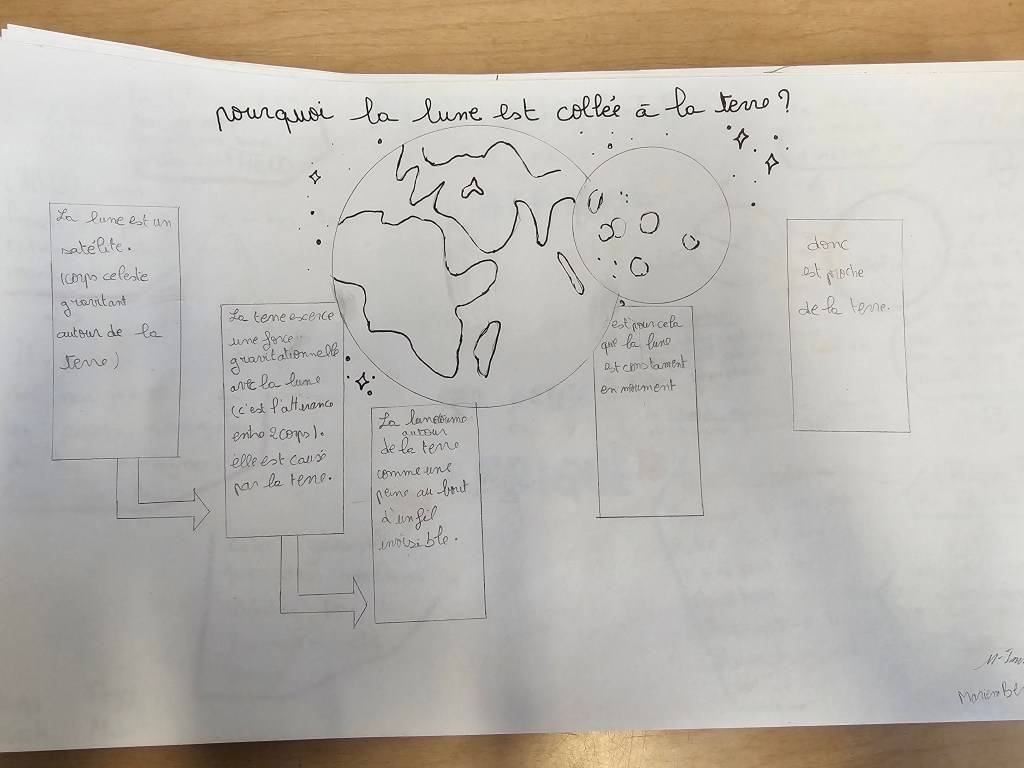 pourquoi la lune est collée à la terre ?
La lune est un
satélite.
(corps celeste
gravitant
autour de la
terre)
La terre escerce
une force
gravitationnelle
avec la lune
(c'est l'attirance
entre 2 corps).
elle est causé
par la terre.
La lune tourne
autour
de la terre
comme une
au bout
d'un fil
invisible.
c'est pour cela
que la lune
est constament
en mouvment
donc
est proche
de la terre.